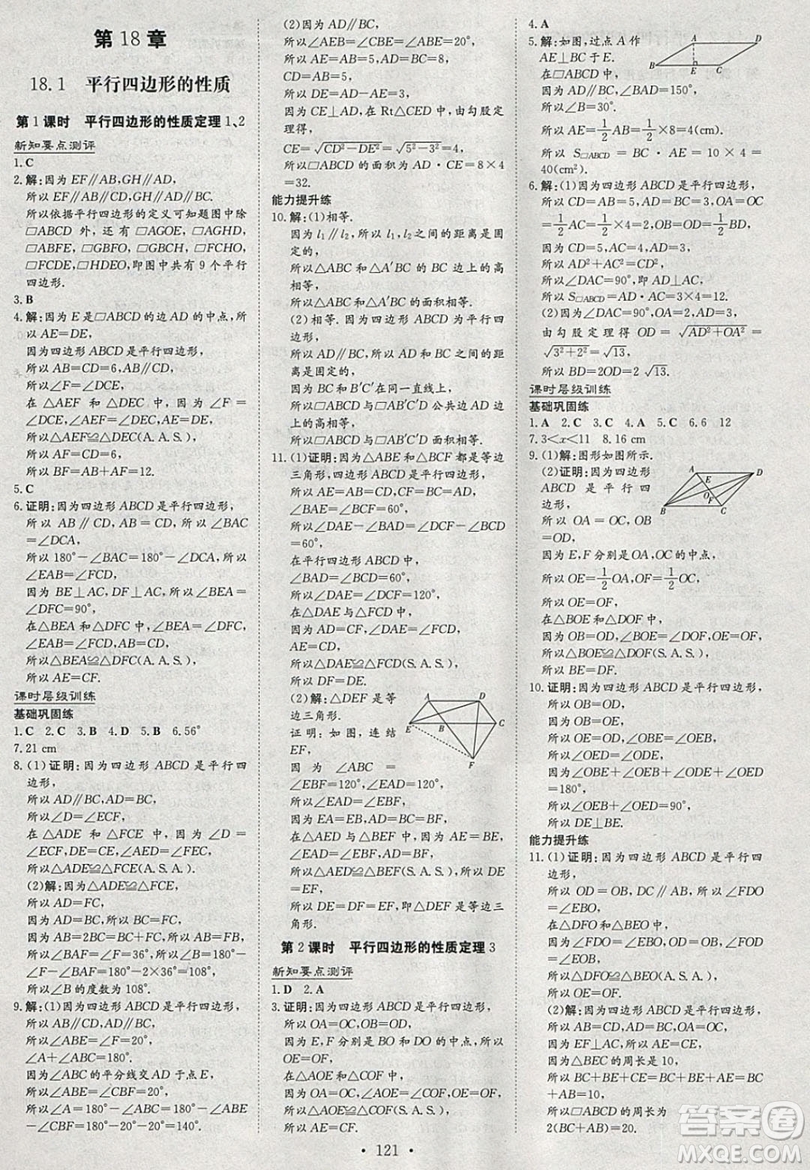 第 18 章
18.1 平行四边形的性质
第 1 课时 平行四边形的性质定理 1、2
新知要点测评
1.C
2.解:因为 EF∥AB,GH∥AD,
所以 EF∥AB∥DC,GH∥AD∥BC.
所以依据平行四边形的定义可知题图中除
□ABCD 外,还有 □AGOE,□AGHD,
□ABFE,□GBFO,□GBCH,□FCHO,
□FCDE,□HDEO,即图中共有 9 个平行
四边形.
3.B
4.解:因为 E 是□ABCD 的边 AD 的中点,所
以 AE=DE,
因为四边形 ABCD 是平行四边形,
所以 AB=CD=6,AB∥CD,
所以∠F=∠DCE,
在△AEF 和△DEC 中,因为 ∠F =
∠DCE,∠AEF=∠DEC,AE=DE,
所以△AEF≌△DEC(A.A.S.),
所以 AF=CD=6,
所以 BF=AB+AF=12.
5.C
6.证明:因为四边形 ABCD 是平行四边形,
所以 AB∥CD,AB=CD,所以∠BAC
=∠DCA,
所以 180°-∠BAC=180°-∠DCA,
所以∠EAB=∠FCD,
因为 BE⊥AC,DF⊥AC,所以∠BEA
=∠DFC=90°,
在△BEA 和△DFC 中,∠BEA=∠DFC,
∠EAB=∠FCD,AB=CD,
所以△BEA≌△DFC(A.A.S.).
课时层级训练
基础巩固练
1.C 2.C 3.B 4.D 5.D 6.56°
7.21 cm
8.(1)证明:因为四边形 ABCD 是平行四
边形,
所以 AD∥BC,AD=BC,
所以∠D=∠ECF,
在△ADE 和△FCE 中,因为∠D =
∠ECF,DE=CE,∠AED=∠FEC,
所以△ADE≌△FCE(A.S.A.).
(2)解:因为△ADE≌△FCE,
所以 AD=FC,
因为 AD=BC,所以 BC=FC,
因为 AB=2BC=BC+FC,所以 AB=FB,
所以∠BAF=∠F=36°,
所以∠B=180°-2×36°=108°,
所以∠B 的度数为 108°.
9.解:(1)因为四边形 ABCD 是平行四边形,
所以 AB∥CD,AD∥BC,
所以∠AEB=∠ABF=20°,
∠A+∠ABC=180°,
因为∠ABC 的平分线交 AD 于点 E,
所以∠ABE=∠CBF,
所以∠ABC=2∠CBF=40°,
所以∠A=180°-∠ABC=180°-40°=140°.
(2)因为 AD∥BC,
所以∠AEB=∠EBC=20°,
所以∠ABE=∠AEB,
所以 AB=AE=5,
因为 AD=BC=8,CD=AB=5,
所以 DE=AD-AE=3,
因为 CE⊥AD,
所以,在 Rt△CED 中,由勾股
定理得,
CE=√CD²-DE²=√5²-3²=4,
所以 □ABCD 的面积为 AD·CE=8×4
=32.
能力提升练
10.解:(1)相等.
因为 l₁∥l₂,所以 l₁,l₂ 之间的距离是
固定的,
所以△ABC 和△A′BC 的 BC 边上的高
相等,
所以△ABC 和△A′BC 的面积相等.
(2)相等.因为四边形 ABCD 为平行四
边形,
所以 AD∥BC,
所以 AD 与 BC 之间的距离是固定的,
因为 BC 和 B′C′在同一直线上,
所以 □ABCD 和□AB′C′D 公共边 AD
上的高相等,
所以 □ABCD 和□AB′C′D 面积相等.
11.(1)证明:因为△ABE 和△BCF 都是等边
三角形,四边形 ABCD 是平行四边形,
所以 AB=AE=CD,AD=BC=CF,
∠BAE=∠BCF=60°,
所以∠DAE-∠BAE=∠DCF-∠BCF,
在平行四边形中,
∠BAD=∠BCD,
所以∠DAE=∠DCF=120°,
在△DAE 和△FCD 中,
因为 AE=CD,∠DAE=∠DCF,AD=CF,
所以△DAE≌△FCD(S.A.S.),
所以 DE=DF.
(2)解:△DEF 是等
边三角形.
证明:如图,连结
EF,
因为 ∠ABC =
∠EBF=120°,
所以∠EBF=∠DAE,
在△AED 与△BEF 中,因为 AE=BE,
∠DAE=∠EBF,AD=BF,
所以△AED≌△BEF(S.A.S.),所以 DE
=EF,
所以 DE=DF=EF,所以△DEF 是等边三
角形.
第 2 课时 平行四边形的性质定理 3
新知要点测评
1.D 2.A
3.证明:因为四边形 ABCD 为平行四边形,
所以 OA=OC,OB=OD,
因为 E,F 分别是 BO 和 DO 的中点,所以
OE=OF,
在△AOE 和△COF 中,
因为 OA=OC,∠AOE=∠COF,OE=OF,
所以△AOE≌△COF,所以 AE=CF.
4.A
5.解:如图,过点 A 作
AE⊥BC 于 E.
因为四边形 ABCD 是平
行四边形,
所以 OA=1/2AC,OB=1/2BD,
所以 AE=1/2AB=1/2×8=4(cm),
所以 S□ABCD=BC·AE=10×4=40(cm²).
6.解:(1)因为四边形 ABCD 是平行四边形,
所以 CD=AB=5,AD=BC=3,OA=OC
=1/2AC=2,
因为 CD=5,AC=4,AD=3,
所以 AD²+AC²=CD²,
所以∠DAC=90°,即 DA⊥AC,
所以 S□ABCD=3×4=12.
(2)因为∠DAC=90°,OA=2,AD=3,
由勾股定理得 OD=√AD²+OA²=
√3²+2²=√13,
所以 BD=2OD=2√13.
课时层级训练
基础巩固练
1.A 2.C 3.A 4.A 5.B 6.6 12
7.3<x<11 8.16 cm
9.(1)解:图形如图所示.
(2)证明:因为四边
形 ABCD 是平行四
边形,
所以 OA=OC,OB
=OD,
因为 E,F 分别是 OA,OC 的中点,
所以 OE=1/2OA,OF=1/2OC,
所以 OE=OF,
在△BOE 和△DOF 中,
因为 OB=OD,∠BOE=∠DOF,OE=OF,
所以△BOE≌△DOF(S.A.S.),
所以 BE=DF.
10.证明:因为四边形 ABCD 是平行四边形,
所以 OB=OD,
因为 OE=OB,所以 OE=OD,
所以∠OBE=∠OEB,∠OED=∠ODE,
因为∠OBE+∠OEB+∠OED+∠ODE=
180°,
所以∠OEB+∠OED=90°,
所以 DE⊥BE.
能力提升练
11.(1)证明:因为四边形 ABCD 是平行四边
形,
所以 OD=OB,DC∥AB,
所以∠FDO=∠EBO,
在△DFO 和△BEO 中,
因为 ∠FDO=∠EBO,OD=OB,∠FOD
=∠EOB,
所以△DFO≌△BEO(A.S.A.),
所以 OE=OF.
(2)解:因为四边形 ABCD 是平行四边形,
所以 AB=CD,AD=BC,OA=OC,
因为 EF⊥AC,所以 AE=CE,
因为△BEC 的周长是 10,
所以 BC+BE+CE=BC+BE+AE=BC
+AB=10,
所以□ABCD 的周长为
2(BC+AB)=20.
121
答案圈
MXQE.COM